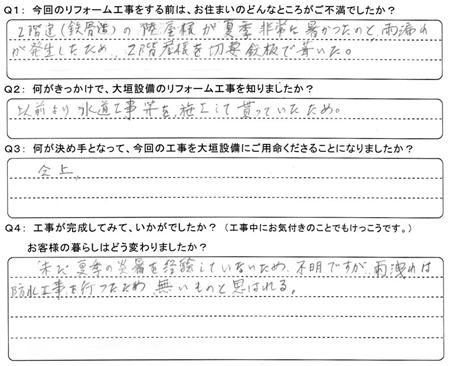 Q1: 今回のリフォーム工事をする前は、お住まいのどんなところがご不満でしたか?
2階建(鉄骨造)の陸屋根が夏季非常に暑かったのと、雨漏れ
が発生したため、2階屋根を切妻鉄板で葺いた。
Q2: 何がきっかけで、大垣設備のリフォーム工事を知りましたか?
以前より水道工事等を、施工して貰っていたため。
Q3: 何が決め手となって、今回の工事を大垣設備にご用命くださることになりましたか?
仝上
Q4: 工事が完成してみて、いかがでしたか? (工事中にお気付きのことでもけっこうです。)
お客様の暮らしはどう変わりましたか?
未だ夏季の炎暑を経験していないため、不明ですが、雨洩れは
防水工事を行ったため、無いものと思はれる。